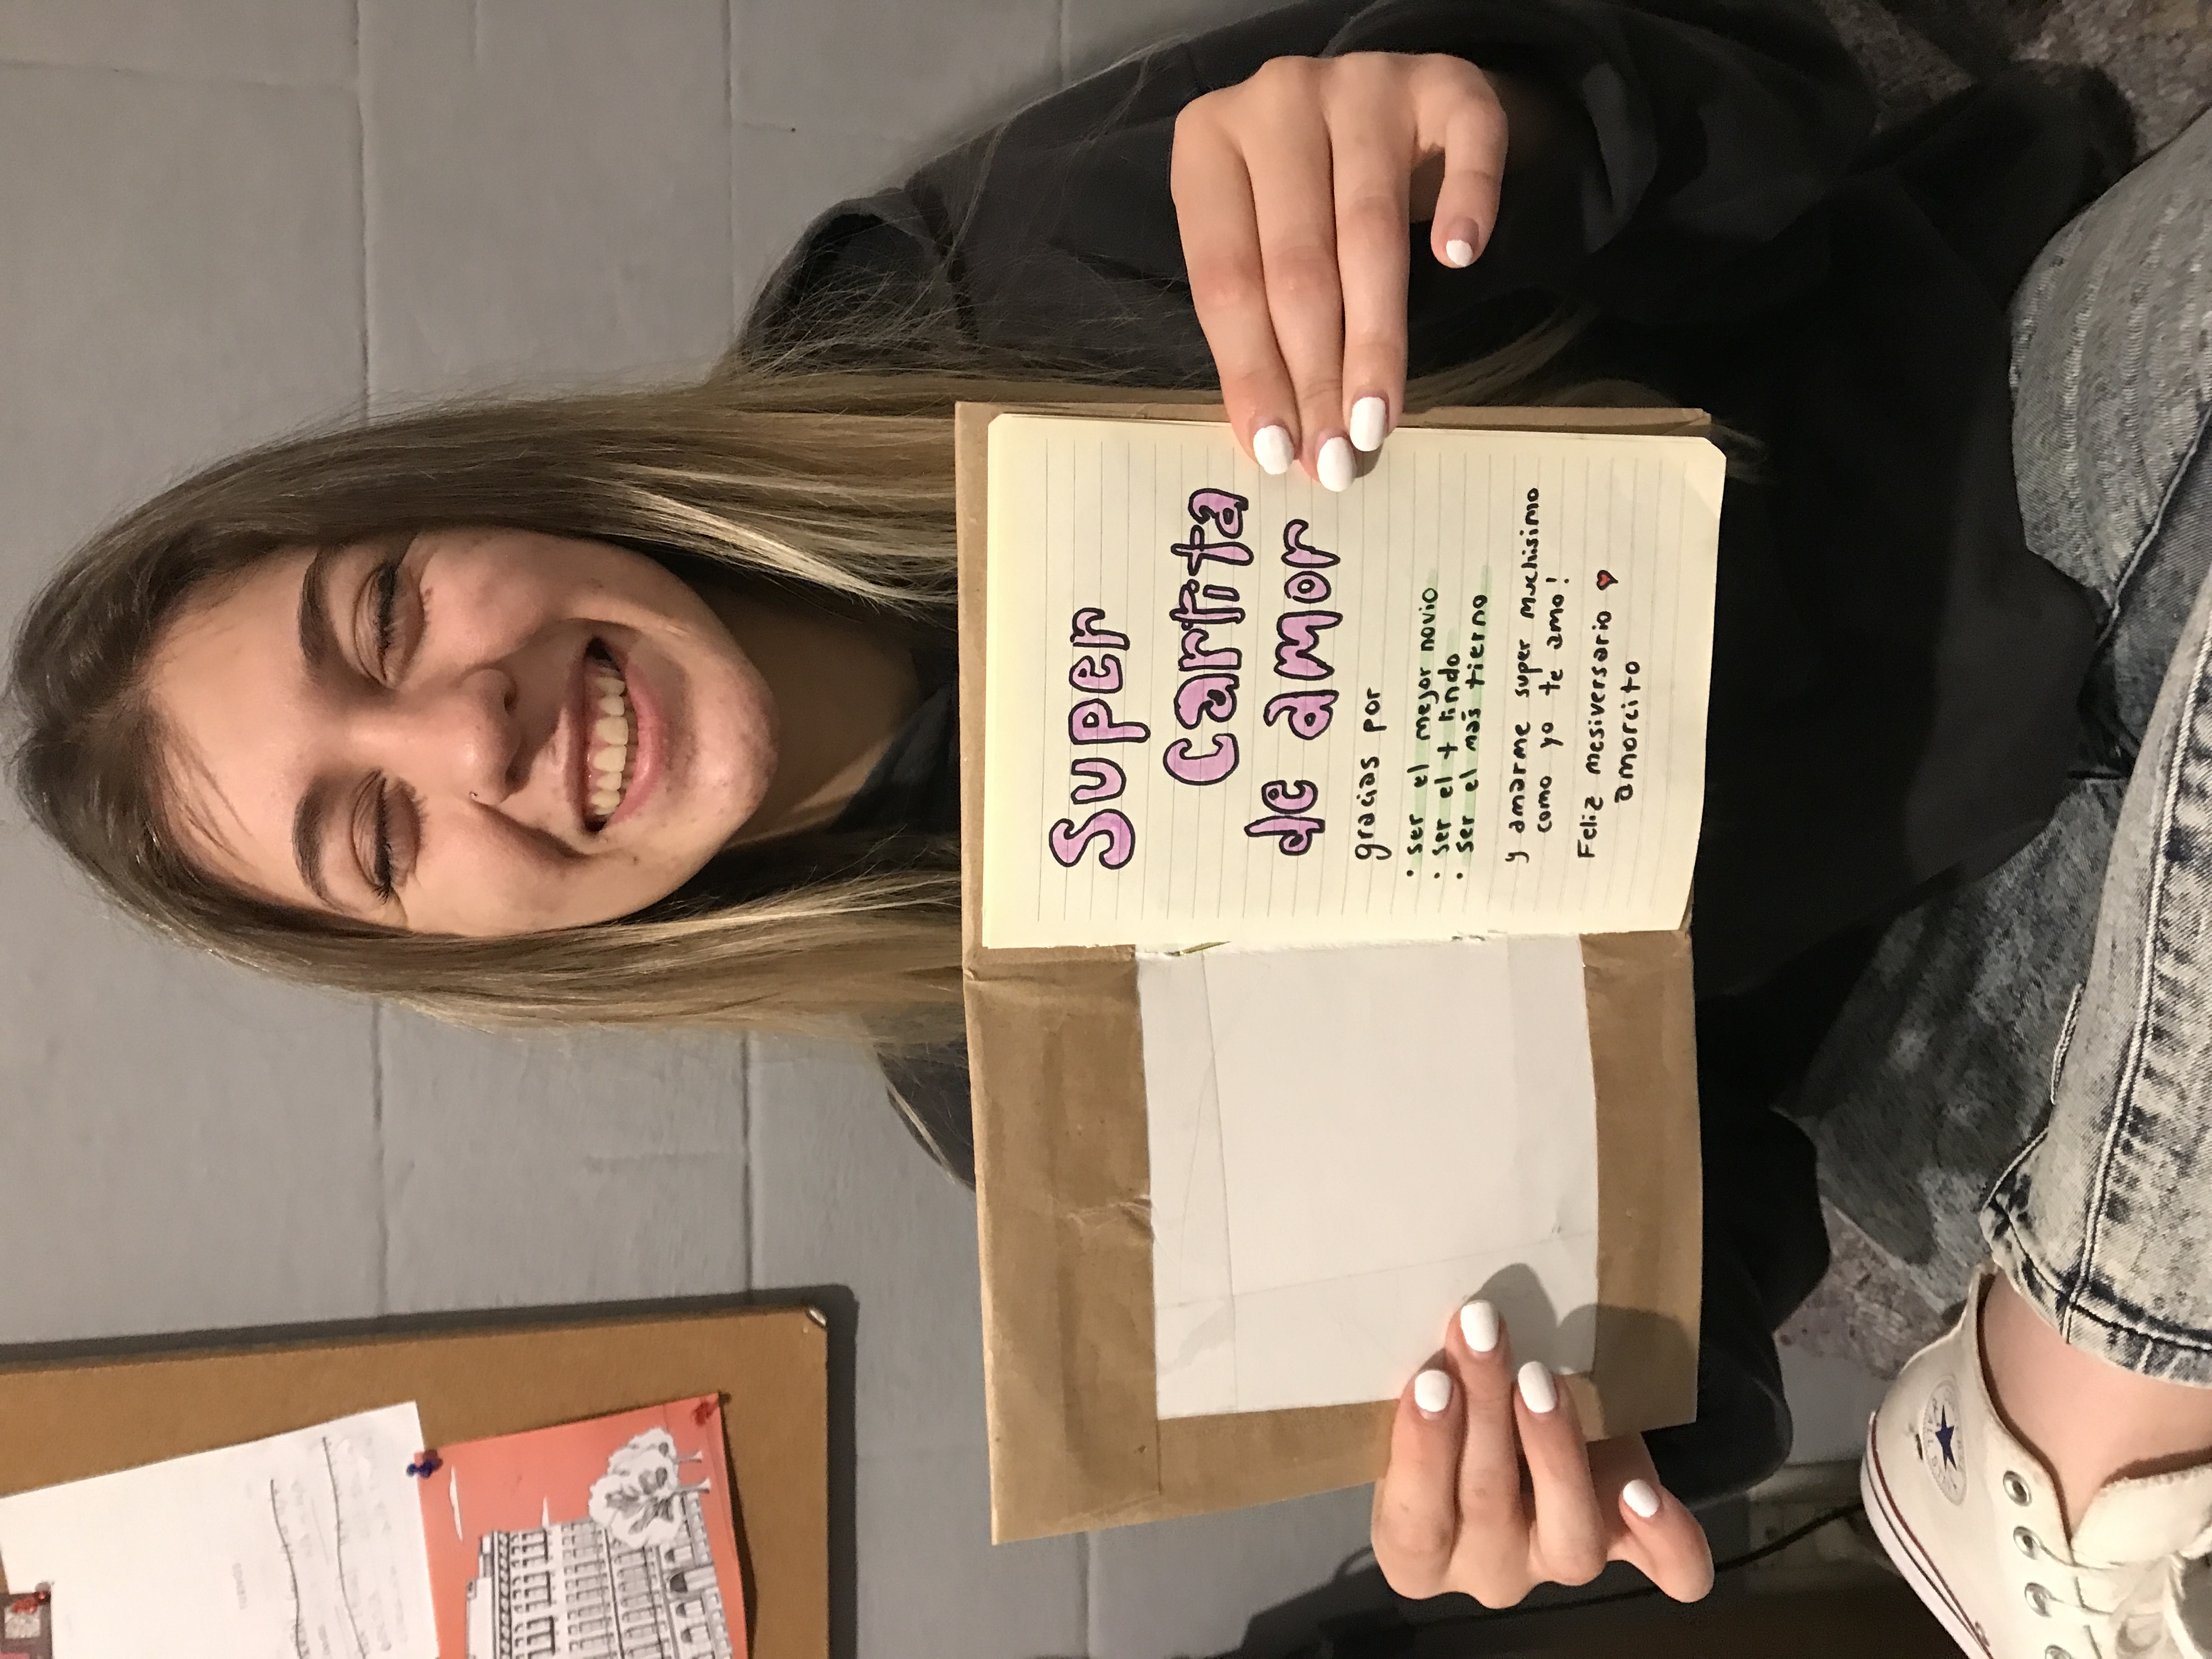 TURNOS
Super
Cartita
de amor
gracias por
• ser el mejor novio
• ser el + lindo
• ser el más tierno
y amarme super muchisimo
como yo te amo!
Feliz mesiversario ♥
amorcito
ALL STAR